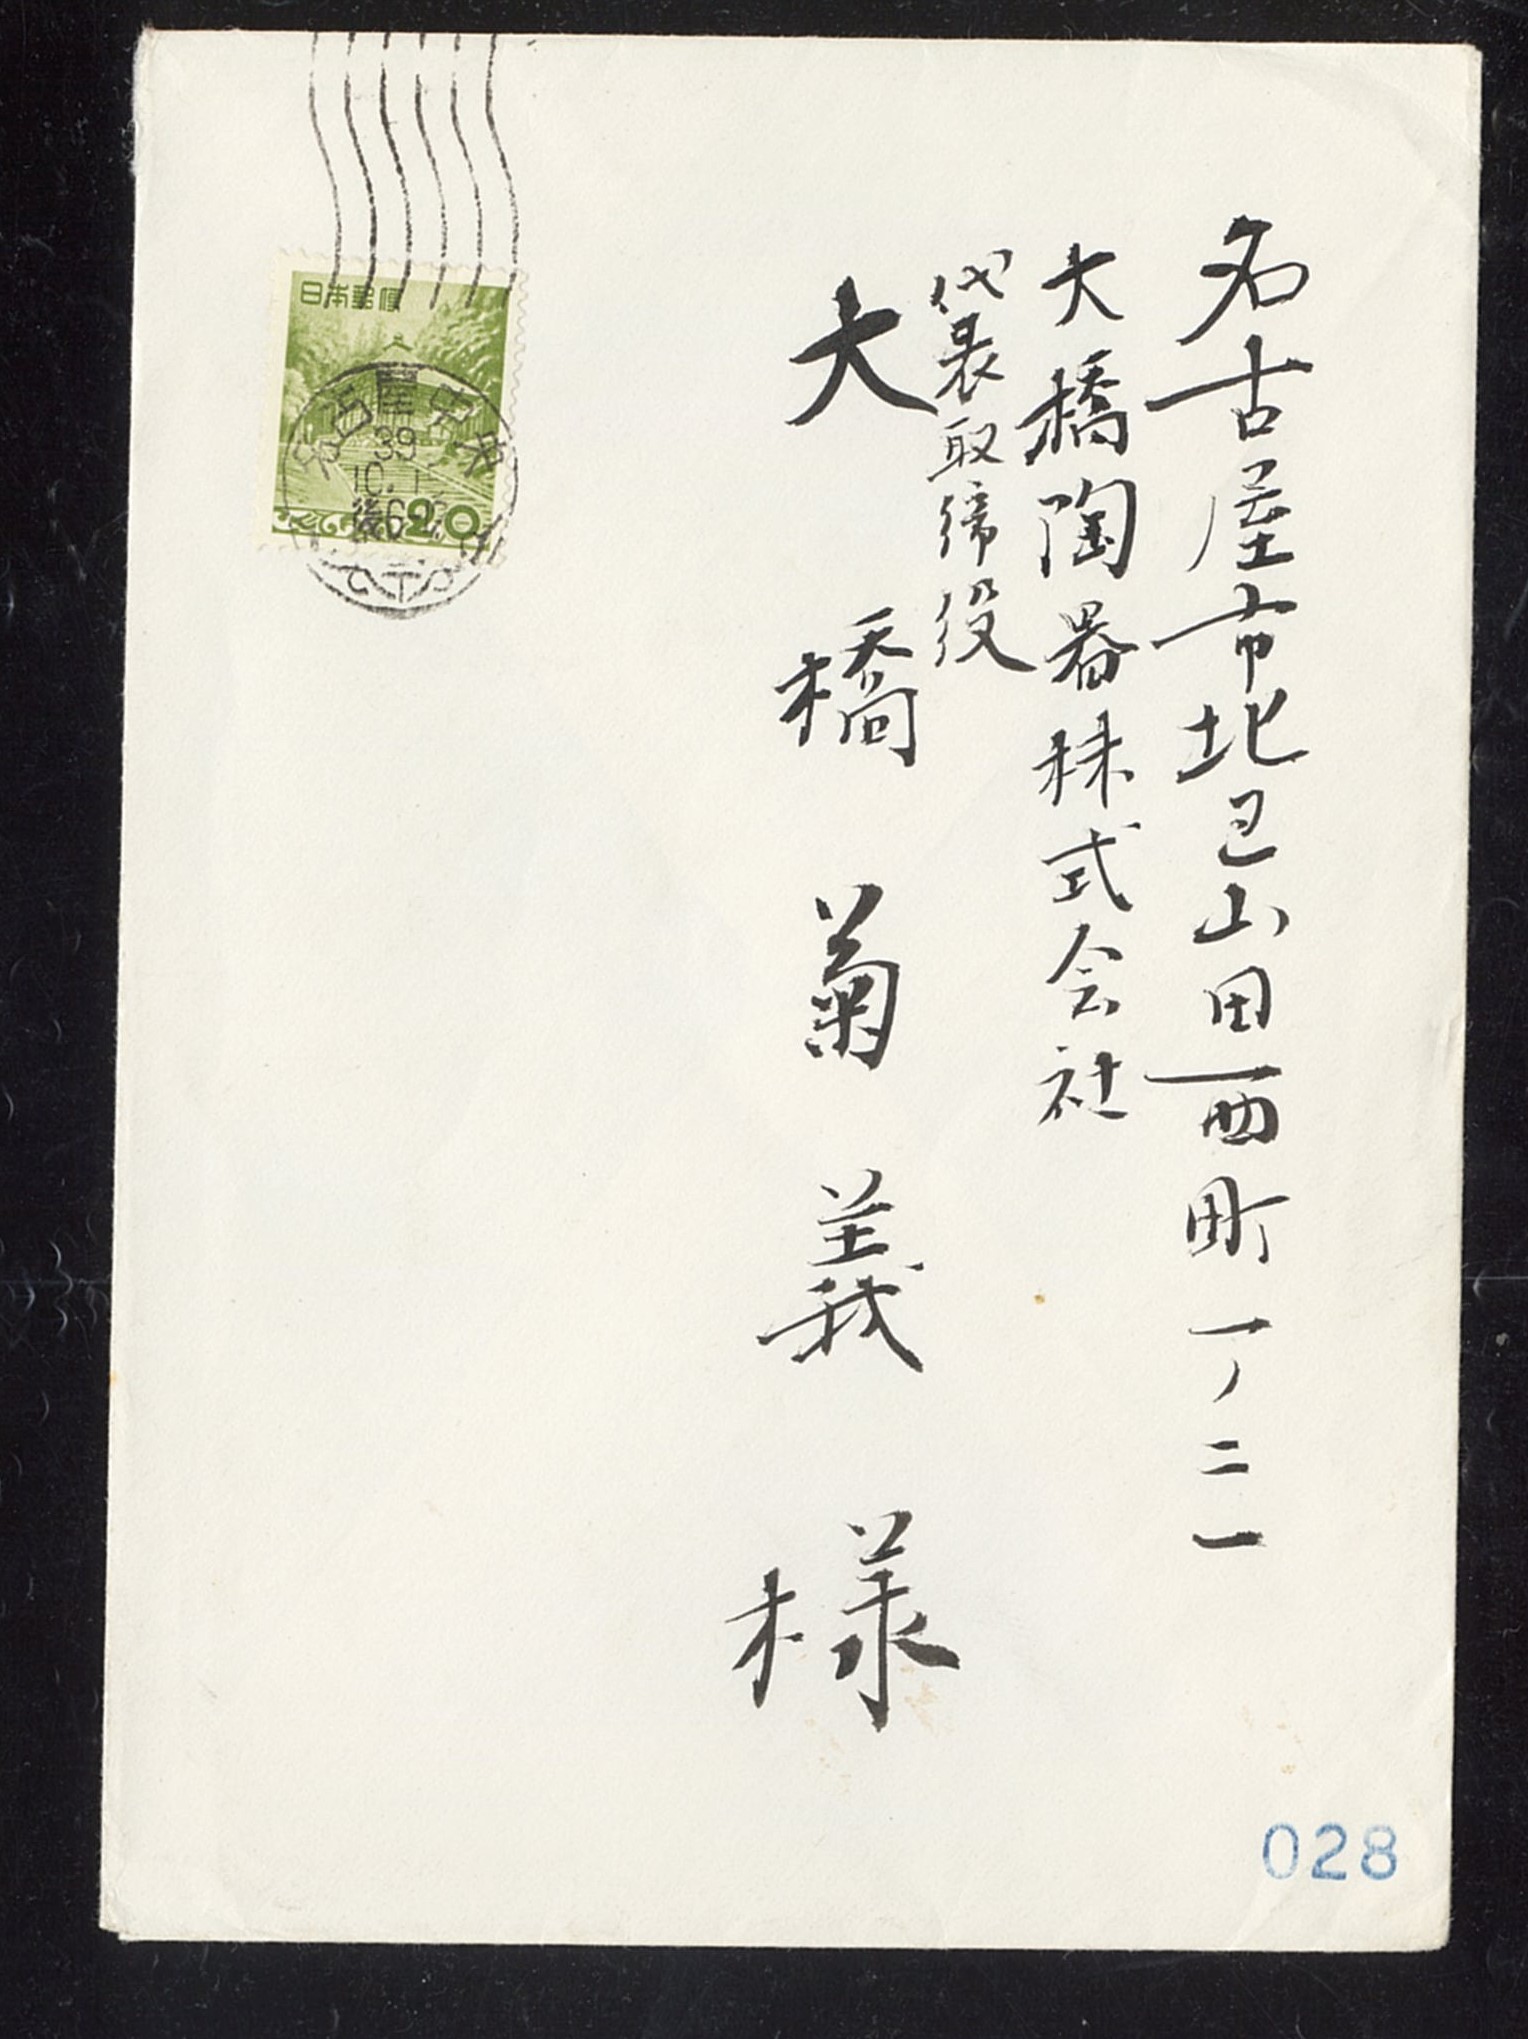 名古屋市北区山田西町一ノ二一
大橋陶器株式会社
代表取締役
大橋菊義様
日本郵便
20
名古屋中央
39
10.1
後6-
028